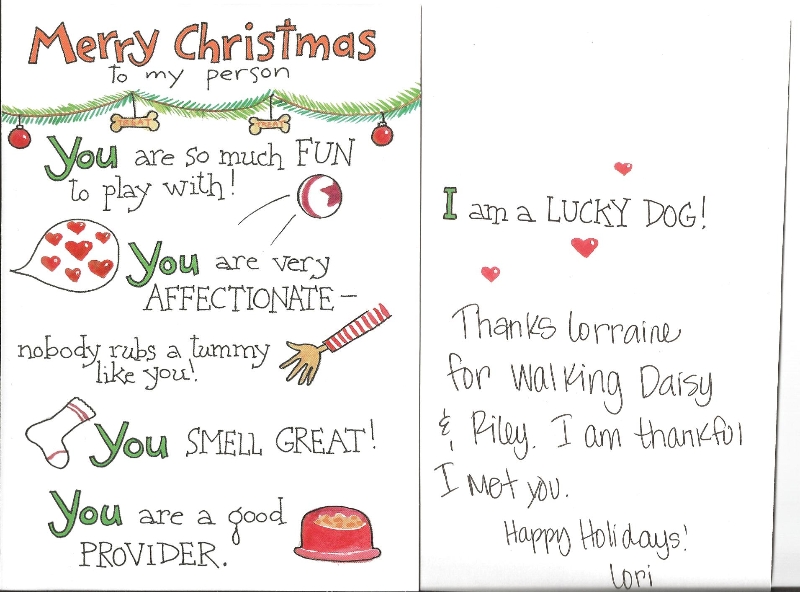 Merry Christmas
to my person
TREAT TREAT
You are so much FUN
to play with!
You are very
AFFECTIONATE –
nobody rubs a tummy
like you!
You SMELL GREAT!
You are a good
PROVIDER.
I am a LUCKY DOG!
Thanks Lorraine
for walking Daisy
& Riley. I am thankful
I met you.
Happy Holidays!
Lori